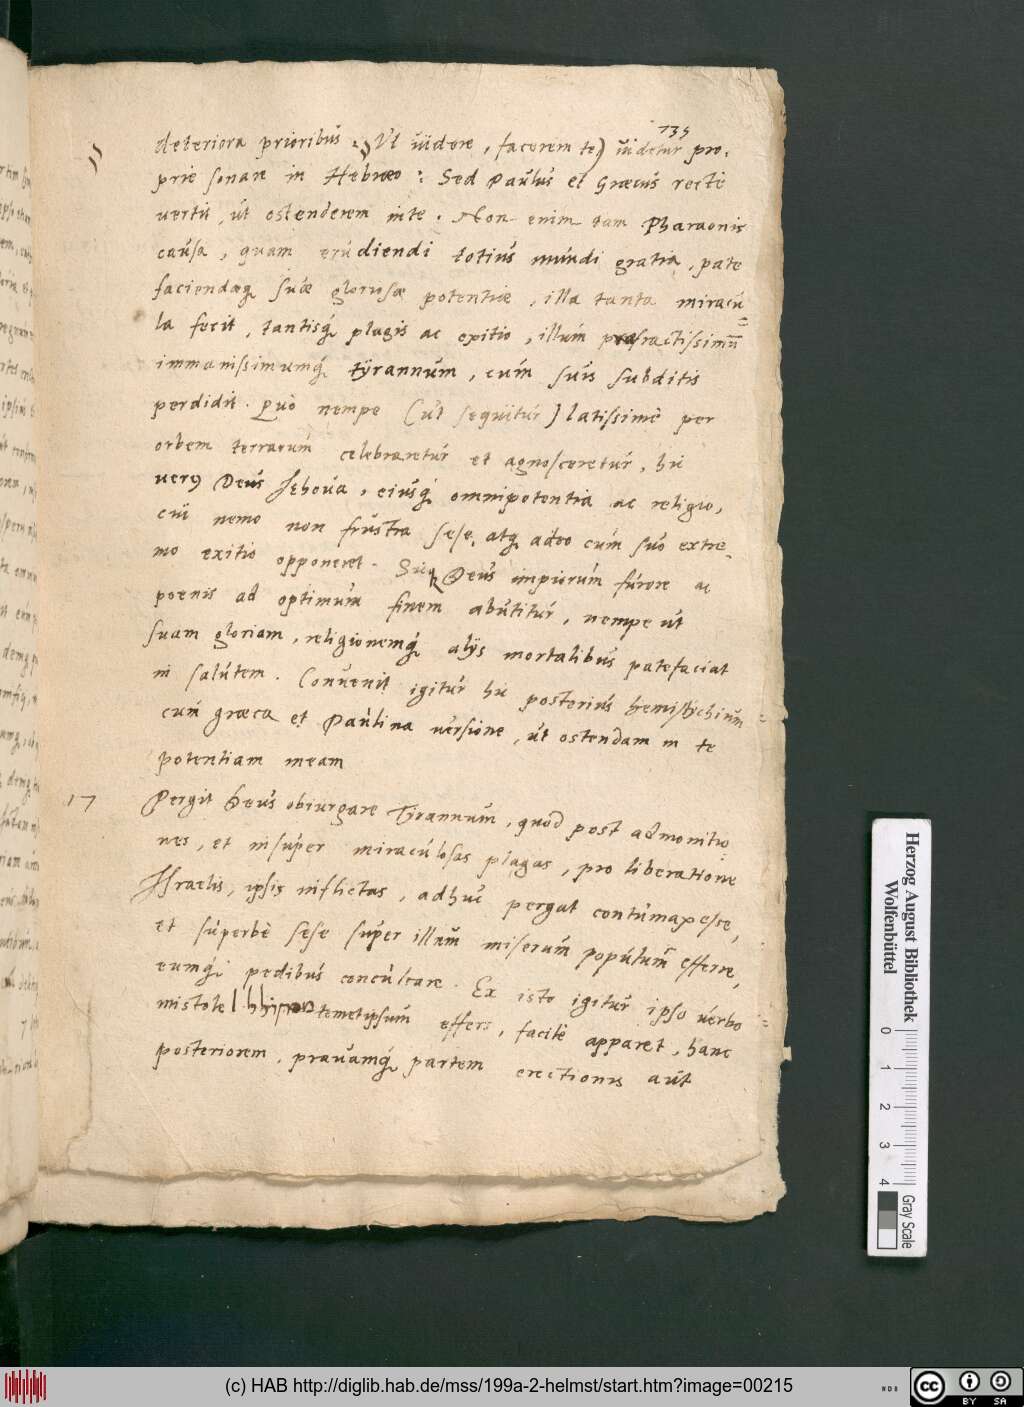 135
deteriora prioribus. Ut videre, facerem te) videtur pro,
prie sonare in Hebræo: Sed Paulus et Græcus recte
vertit, ut ostenderem in te. Non enim tam Pharaonis
causa, quam erudiendi totius mundi gratia, pate
faciendæq suæ gloriosæ potentiæ, illa tanta miracu=
la fecit, tantisq plagis ac exitio, illum præfractissimū
immanissimumq tÿrannum, cum suis subditis
perdidit. Quo nempe (ut sequitur) latissimè per
orbem terrarum celebraretur et agnosceretur, hic
verus Deus Jehova, eiusq omnipotentia ac religio,
cui nemo non frustra sese, atq adeo cum suo extre=
mo exitio opponeret. Sicq Deus impiorum furore ac
poenis ad optimum finem abutitur, nempe ut
suam gloriam, religionemq alijs mortalibus patefaciat
in salutem. Convenit igitur hic posterius hemistichium=
cum græca et Paulina versione, ut ostendam in te
potentiam meam
17 Pergit Deus obiurgare Tÿrannum, quod post admonitio
nes, et insuper miraculosas plagas, pro liberatione
Israelis, ipsis inflictas, adhuc pergat contumacescere,
et superbè sese super illum miserum populum efferre,
eumq pedibus conculcare. Ex isto igitur ipso verbo=
temetipsum effers, facile apparet, hanc
posteriorem, pravamq partem erectionis aut
Herzog August Bibliothek
Wolfenbüttel
0 1 2 3 4
Gray Scale
(c) HAB http://diglib.hab.de/mss/199a-2-helmst/start.htm?image=00215
cc BY SA